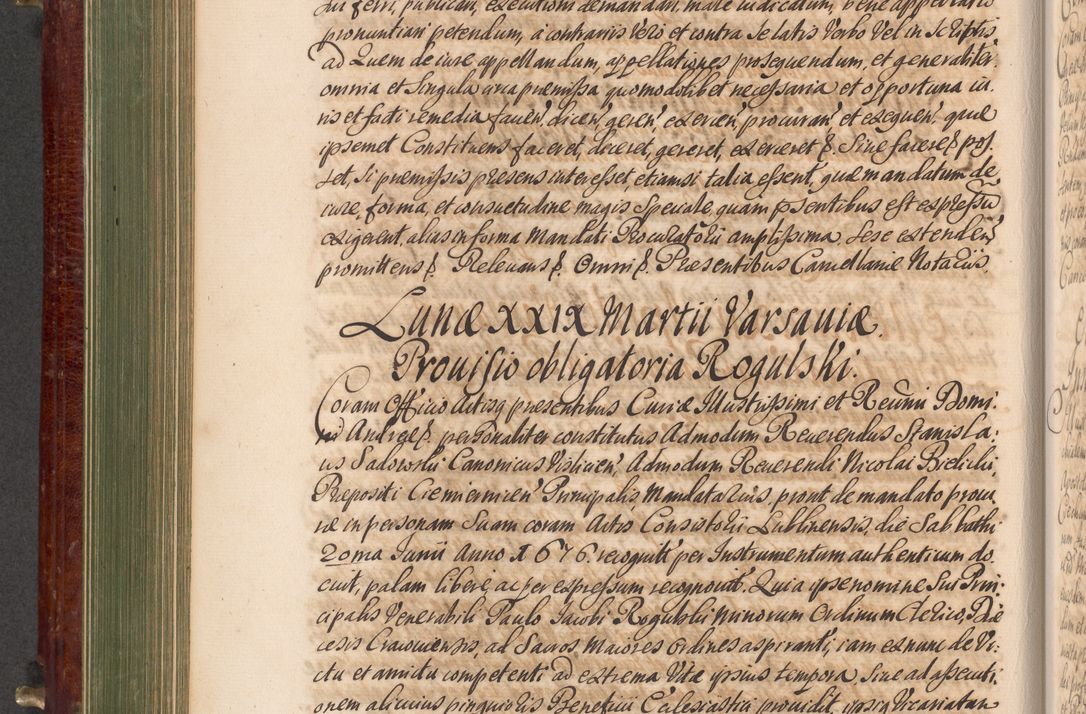 in ferri, publicari, executioni demandari, male iudicatum, bene appellatum
pronuntiari petendum, à contrariis Vero et contra se latis Verbo Vel in Scriptis
ad Quem de iure appellandum, appellationes prosequendum, et generaliter
omnia et Singula circa præmissa quomodolibet necessaria et opportuna iu,
ris et facti remedia facien', dicen', geren', exercen', procuran' et exequen', quæ
ipsemet Constituens faceret, diceret, gereret, exerceret &. Siue facere & pos,
set, Si præmissis præsens interesset, etiamsi talia essent, quæ mandatum de
iure, forma, et consuetudine magis Speciale, quam pñsentibus est expressũ
exigerent, alias in forma Mandati Procuratorii amplissima Sese extenden'
promittens &. Releuans &. Omni &. Præsentibus Cancellariæ Notariis.
Lunæ XXIX Martii Varsauiæ.
Prouisio obligatoria Rogulski.
Coram Officio Actisq præsentibus Curiæ Illustrissimi et Reuñii Domi:
ni Andreæ &. personaliter constitutus Admodum Reuerendus Stanisla:
us Sadowski Canonicus Vislicien', Admodum Reuerendi Nicolai Bielicki,
Præpositi Ciemiernicen' Principalis, Mandatarius, prout de mandato procu
ræ in personam Suam coram Actis Consistorii Lublinensis, die Sabbathi
20ma Junii Anno 1676 recognito per Instrumentum authenticum do
cuit, palam liberè, ac per expressum recognouit. Quia ipse nomine Sui Prin:
cipalis Venerabili Paulo Jacobi Rogulski minorum Ordinum Clerico, Diæ
cesis Cracouiensis, ad Sacros Maiores Ordines aspiranti, iam ex nunc de Vi:
ctu et amictu competenti ad extrema Vitæ ipsius tempora, Siue ad assecuti,
onem alicuius pinguioris Beneficii Ecclesiastici prouidit, ipsiq Vicariatum